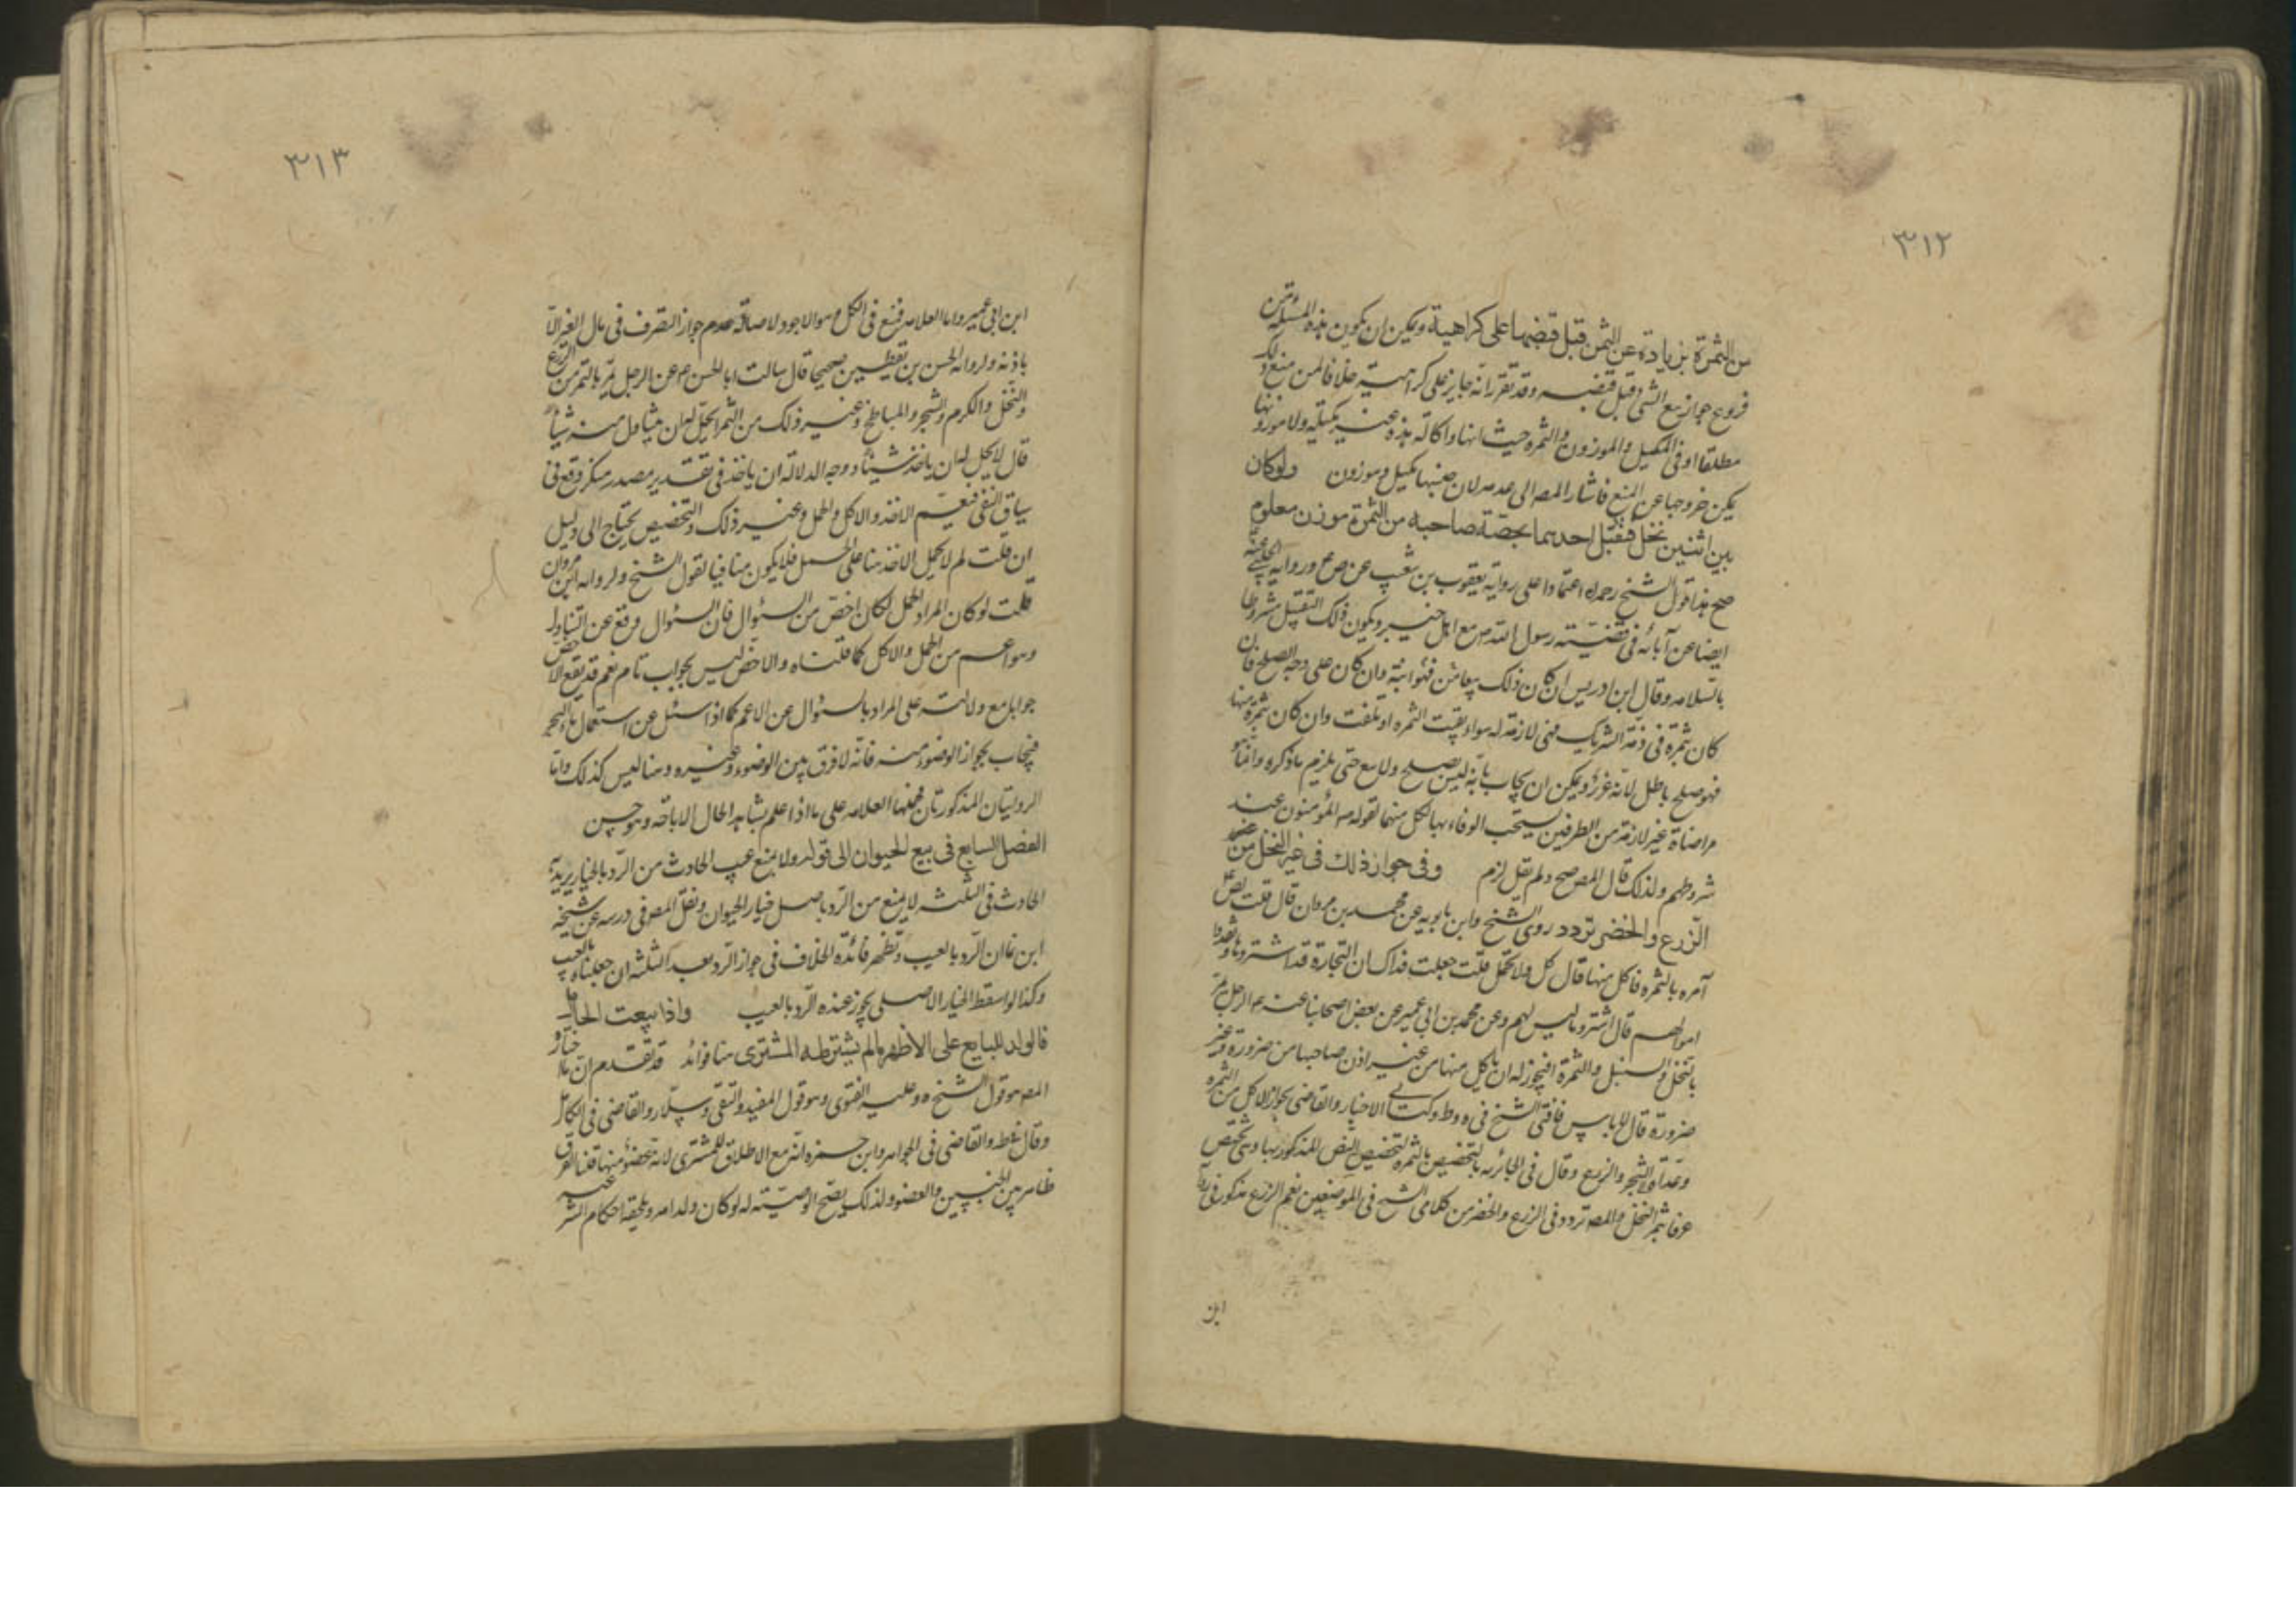 ٣١٢
من الثمرة بزيادة عن الثمن قبل قبضها على كراهية ويمكن ان يكون هذه المسئلة من
فروع جواز بيع الشئ قبل قبضه وقد تقرر انه جايز على كراهية خلافا لمن منع ذلك
مطلقا او في المكيل والموزون والثمره حيث انها واكالة هذه غير مكيلة ولا موزونة
يمكن خروجها عن المنع فاشار المصـ الى عدمه لان جنسها مكيل وموزون ولو كان
بين اثنين نخل فتقبل احدهما بحصة صاحبه من الثمرة بوزن معلوم
صح هذا قول الشيخ رحمه الله اعتمادا على رواية يعقوب بن شعيب عن ص ع ورواية الحلبي عنه
ايضا عن آبائه في قضية رسول الله ص مع اهل خيبر ويكون ذلك التقبيل مشروطا
بالسلامه وقال ابن ادريس ان كان ذلك بيعا فهو مزابنة وان كان على وجه الصلح فان
كان ثمرة في ذمة الشريك فهي لازمة له سواء بقيت الثمره او تلفت وان كان ثمرة منها
فهو صلح باطل لانه غرر ويمكن ان يجاب بانه ليس بصلح ولا بيع حتى يلزم ما ذكره وانما هو
مراضاة غير لازمة من الطرفين يستحب الوفاء بها لكل منهما لقوله ص المؤمنون عند
شروطهم ولذلك قال المصـ صح ولم يقل لزم وفي جواز ذلك في غير النخل من شجر
الزرع والخضر تردد روى الشيخ وابن بابويه عن محمد بن مروان قال قلت لص ع
آمر بالثمره فاكل منها قال كل ولا تحمل قلت جعلت فداك ان التجارة قد اشتروها ونقدوا
اموالهم قال اشتروا ما ليس لهم وعن محمد بن ابي عمير عن بعض اصحابنا عنه ع الرجل يمر
بالنخل والسنبل والثمرة افيجوز له ان ياكل منها من غير اذن صاحبها من ضرورة وغير
ضرورة قال لا باس فافتى الشيخ في ه وط وكتابي الاخبار والقاضي بجواز الاكل من الثمرة
وعداه الى الشجر والزرع وقال في الحائريه بالتخصيص بالثمره لتخصيص النص المذكور بها وهي تختص
عرفا بثمر النخل والمصـ تردد في الزرع والخضر من كلامي الشيخ في الموضعين نعم الزرع مذكور في رواية
ابن
٣١٣
ابن ابي عمير واما العلامه فمنع في الكل وهو الاجود ولاصالة عدم جواز التصرف في مال الغير الا
باذنه ولرواية الحسن بن يقطين صحيحا قال سالت ابا الحسن ع عن الرجل يمر بالثمر من الزرع
والنخل والكرم والشجر والمباطخ وغير ذلك من الثمر ايحل له ان يتناول منه شيئا
قال لا يحل له ان ياخذ شيئا ووجه الدلالة ان ياخذ في تقدير مصدر منكر وقع في
سياق النفي فيعم الاخذ والاكل والحمل وغير ذلك والتخصيص يحتاج الى دليل
ان قلت لم لا يحمل الاخذ هنا على الحمل فلا يكون منافيا لقول الشيخ ولرواية ابن مروان
قلت لو كان المراد الحمل لكان اخص من السئوال فان السئوال وقع عن التناول
وهو اعم من الحمل والاكل كما قلناه والاخص ليس بجواب تام نعم قد يقع الاخص
جوابا مع دلالته على المراد بالسئوال عن الاعم كما اذا سئل عن استعمال ماء البحر
فيجاب بجواز الوضوء منه فانه لا فرق بين الوضوء وغيره وهنا ليس كذلك واما
الروايتان المذكورتان فحملها العلامه على ما اذا علم بشاهد الحال الاباحة وهو حسن
الفصل السابع في بيع الحيوان الى قوله ولا يمنع عيب الحادث من الرد بالخيار يريد ان
الحادث في الثلثه لا يمنع من الرد باصل خيار الحيوان ونقل المصـ في درسه عن شيخه
ابن نما ان الرد بالعيب وتظهر فائدة الخلاف في جواز الرد بعد الثلثة ان جعلناه بالعيب
وكذا لو اسقط الخيار الاصلي يجوز عنده الرد بالعيب واذا بيعت الحامل
فالولد للبايع على الاظهر ما لم يشترطه المشتري هنا فوائد قد تقدم ان ما اختاره
المصـ هو قول الشيخ ه وعليه الفتوى وهو قول المفيد والتقى وسلار والقاضي في الكامل
وقال في ط والقاضي في الجواهر وابن حمزه انه مع الاطلاق للمشتري لانه كعضو منها قلنا الفرق
ظاهر بين الجنين والعضو ولذلك يصح الوصية له لو كان ولد امه ويلحقه احكام الشرعيه